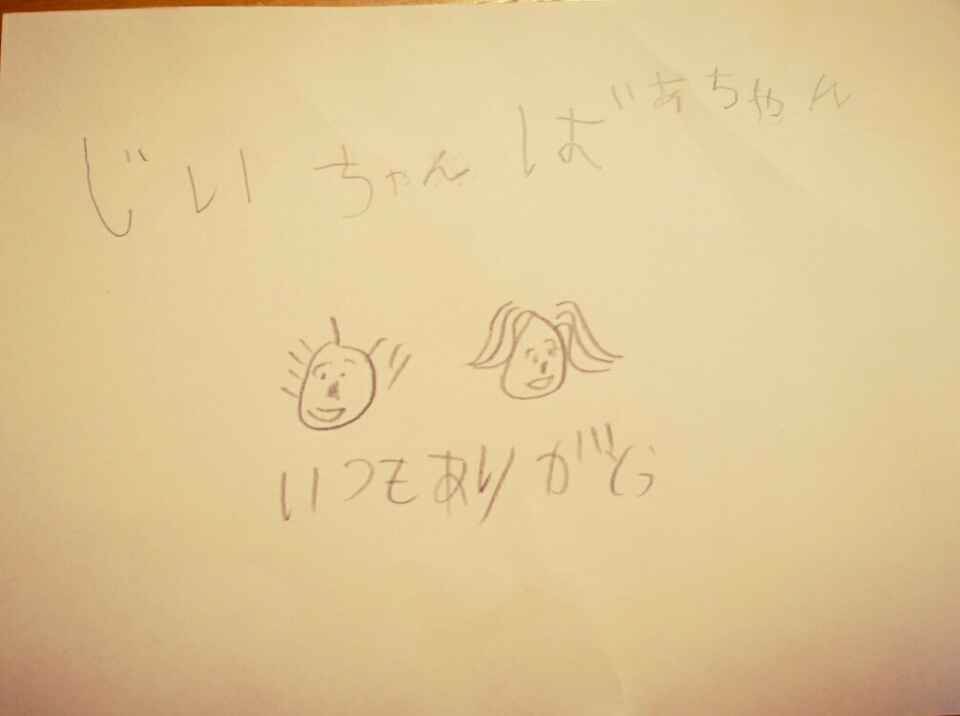 じいちゃんばあちゃん
いつもありがとう